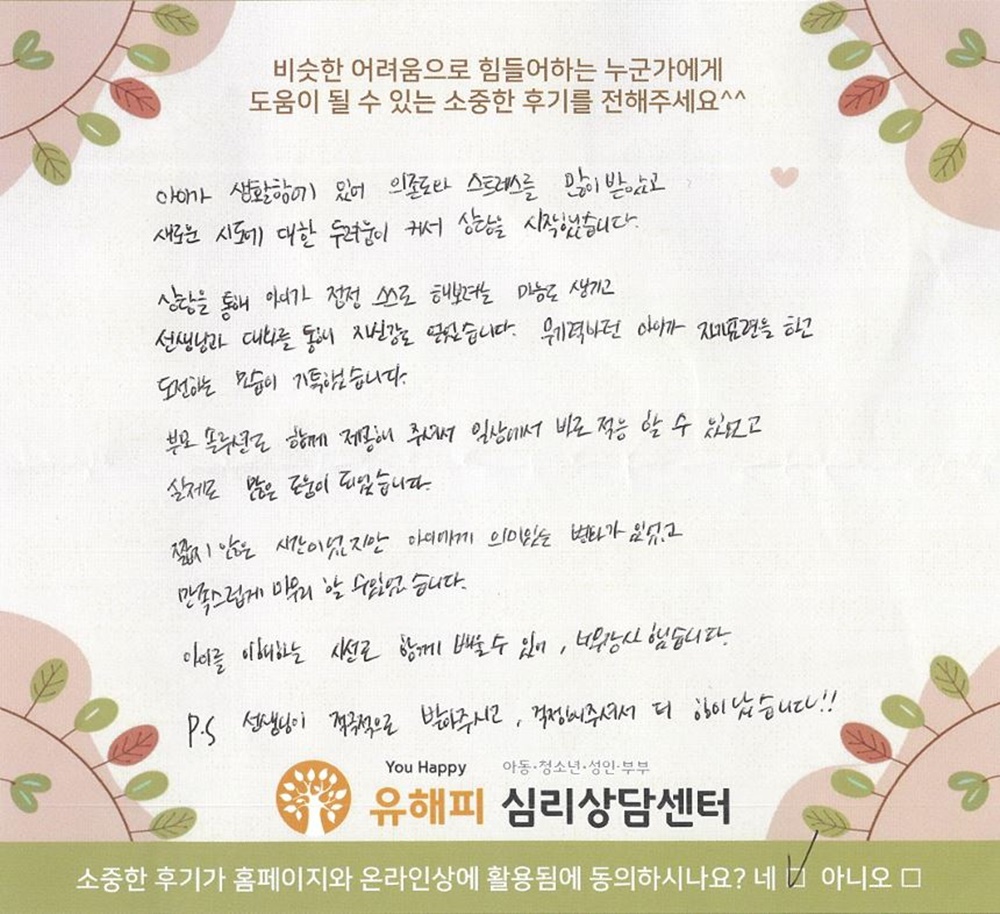 비슷한 어려움으로 힘들어하는 누군가에게
도움이 될 수 있는 소중한 후기를 전해주세요^^
아이가 생활함에 있어 의존도와 스트레스를 많이 받았고
새로운 시도에 대한 두려움이 커서 상담을 시작했습니다.
상담을 통해 아이가 점점 스스로 해보려는 마음도 생기고
선생님과 대화를 통해 자신감도 얻었습니다. 무기력하던 아이가 자기표현을 하고
도전하는 모습이 기특했습니다.
부모 솔루션도 함께 제공해 주셔서 일상에서 바로 적용 할 수 있었고
실제로 많은 도움이 되었습니다.
짧지 않은 시간이었지만 아이에게 의미있는 변화가 있었고
만족스럽게 마무리 할 수있었습니다.
아이를 이해하는 시선도 함께 배울 수 있어, 너무감사 했습니다.
P.S 선생님이 적극적으로 받아주시고, 걱정해주셔서 더 힘이 났습니다!!
You Happy 아동·청소년·성인·부부
유해피 심리상담센터
소중한 후기가 홈페이지와 온라인상에 활용됨에 동의하시나요? 네 ☑ 아니오 □